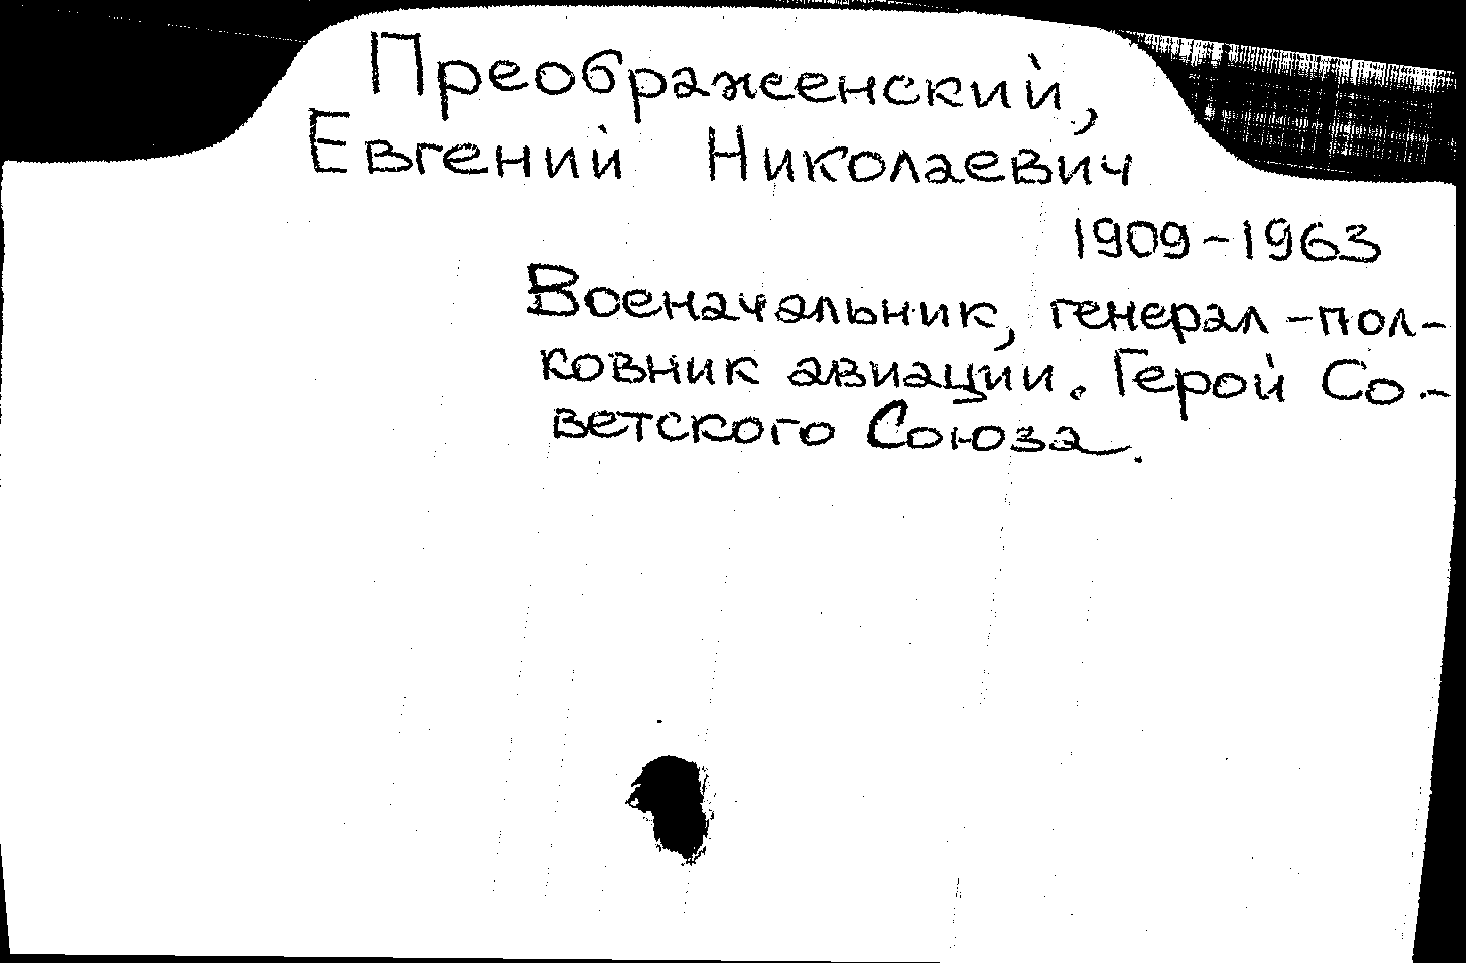 Преображенский,
Евгений Николаевич
1909-1963
Военачальник, генерал-пол-
ковник авиации. Герой Со-
ветского Союза.